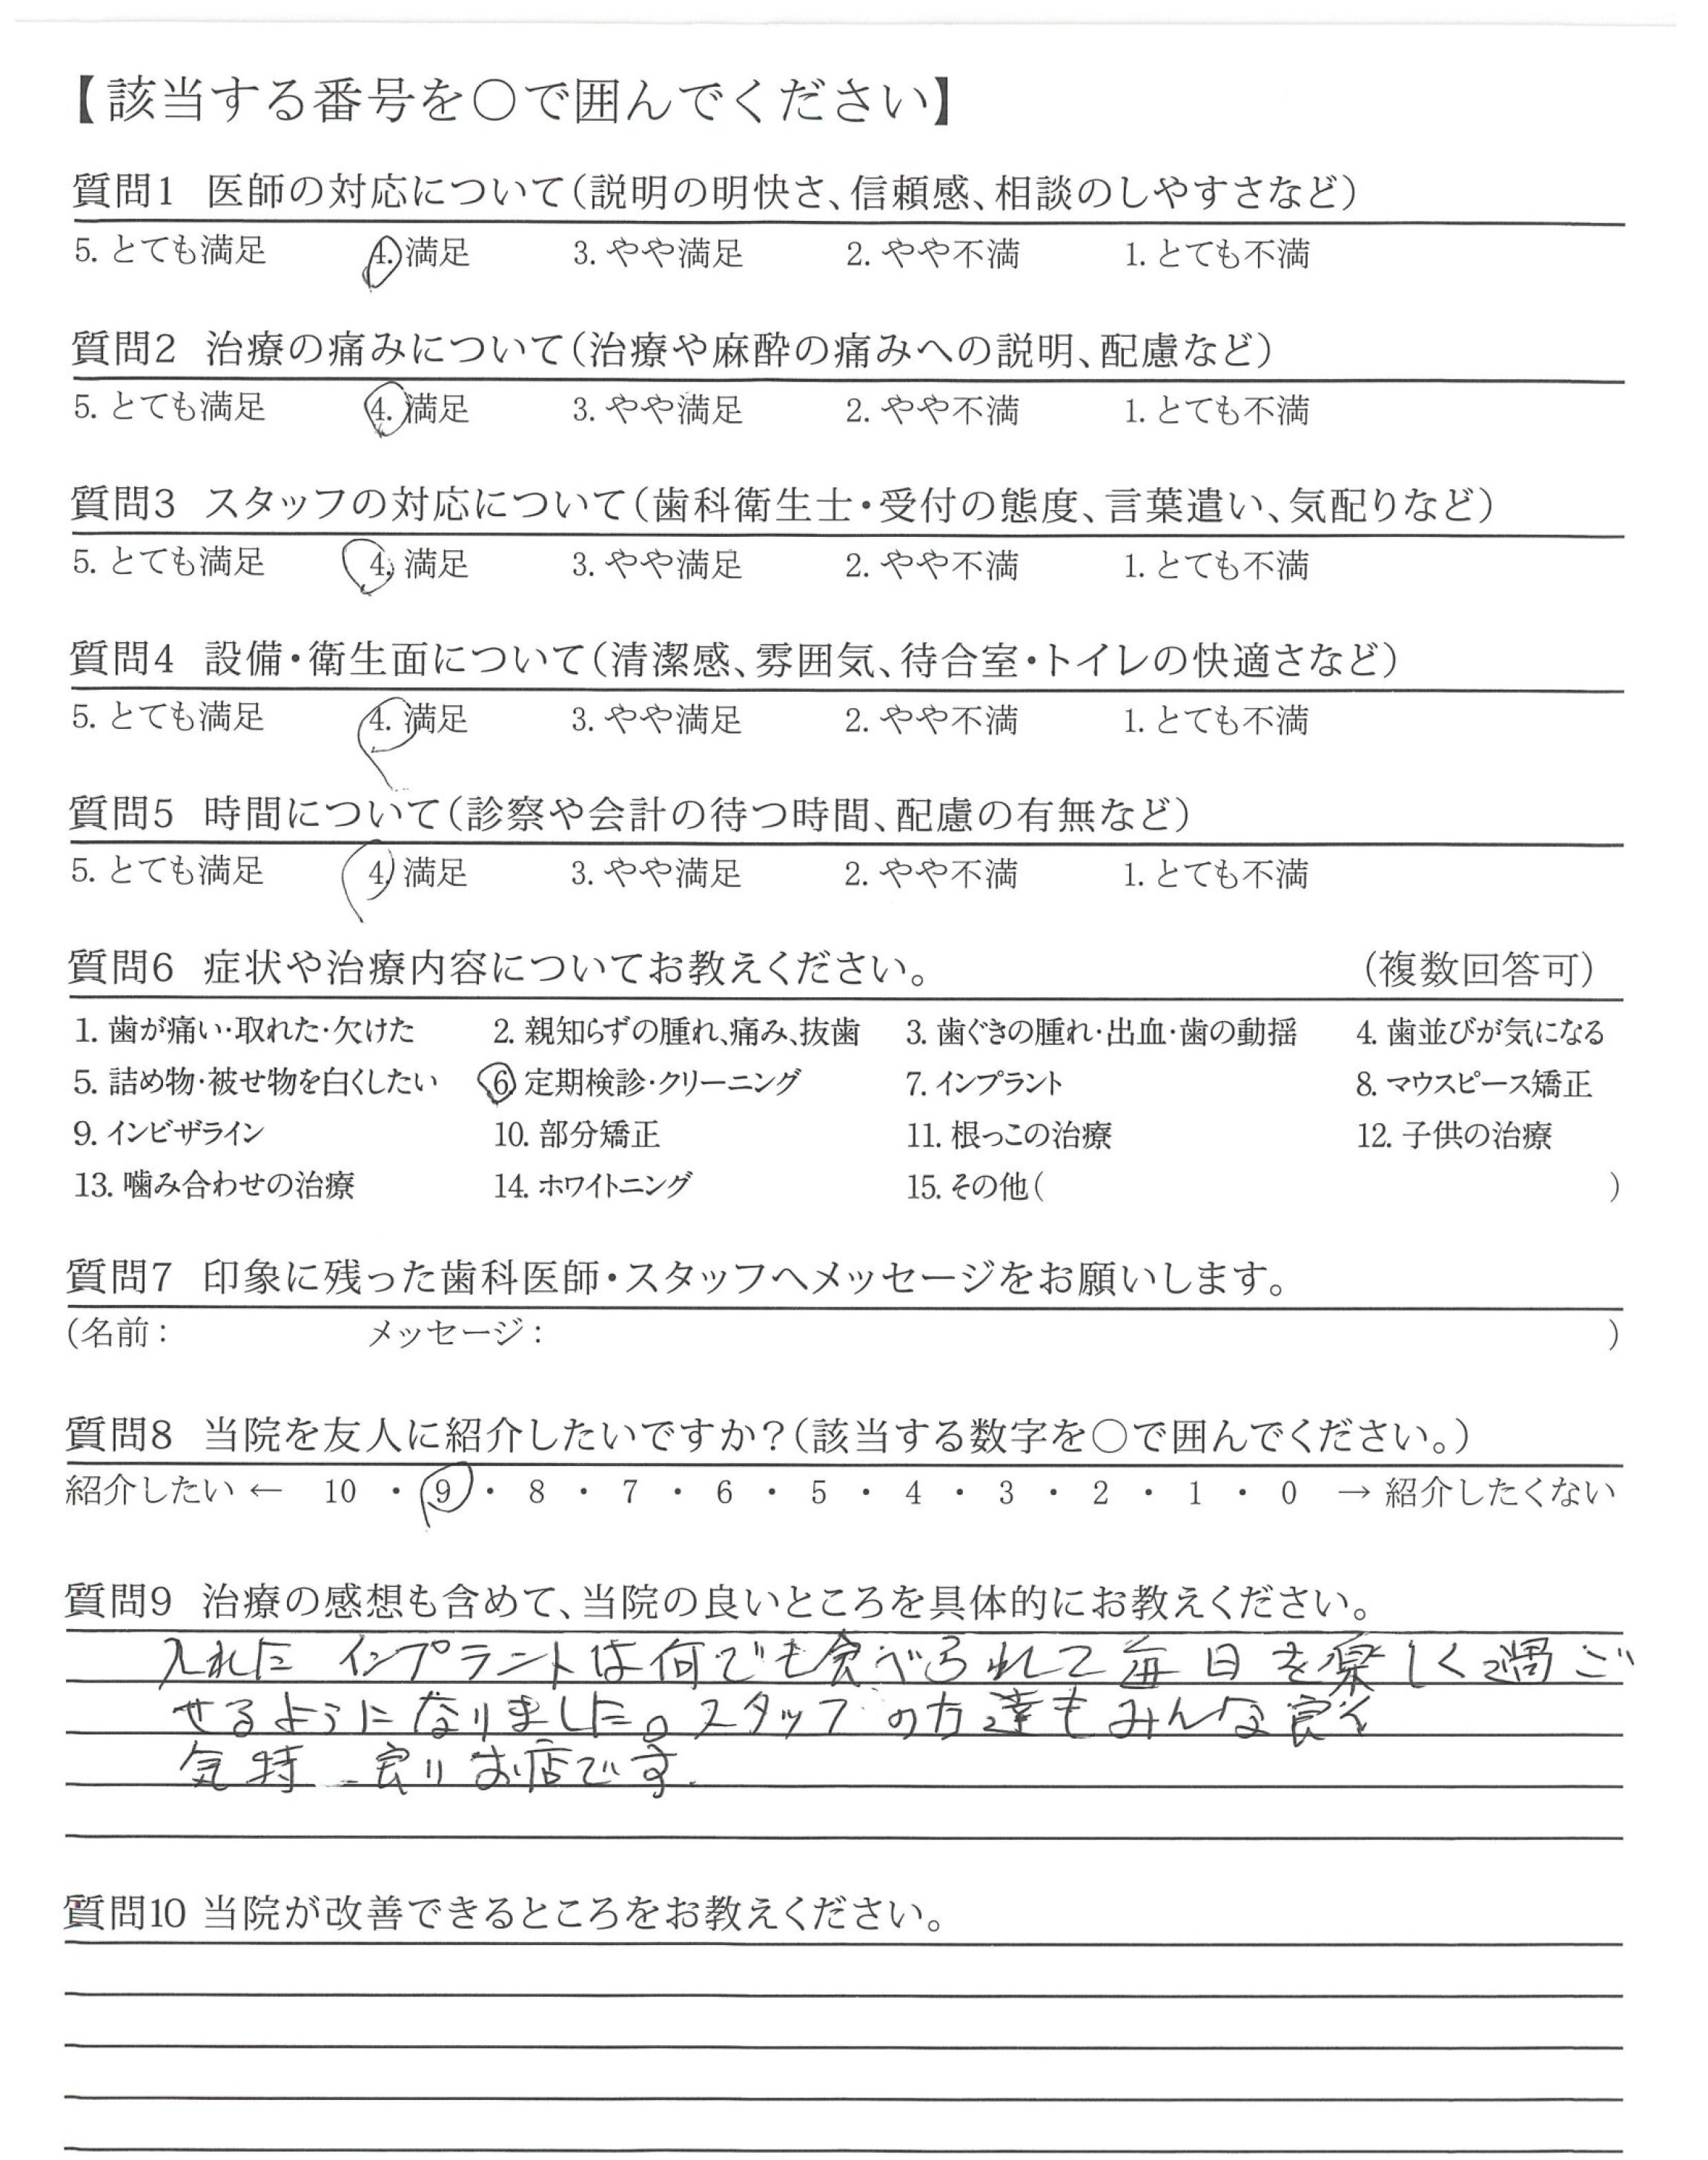 【該当する番号を○で囲んでください】
質問1 医師の対応について(説明の明快さ、信頼感、相談のしやすさなど)
5. とても満足 4. 満足 3. やや満足 2. やや不満 1. とても不満
質問2 治療の痛みについて(治療や麻酔の痛みへの説明、配慮など)
5. とても満足 4. 満足 3. やや満足 2. やや不満 1. とても不満
質問3 スタッフの対応について(歯科衛生士・受付の態度、言葉遣い、気配りなど)
5. とても満足 4. 満足 3. やや満足 2. やや不満 1. とても不満
質問4 設備・衛生面について(清潔感、雰囲気、待合室・トイレの快適さなど)
5. とても満足 4. 満足 3. やや満足 2. やや不満 1. とても不満
質問5 時間について(診察や会計の待つ時間、配慮の有無など)
5. とても満足 4. 満足 3. やや満足 2. やや不満 1. とても不満
質問6 症状や治療内容についてお教えください。 (複数回答可)
1. 歯が痛い・取れた・欠けた 2. 親知らずの腫れ、痛み、抜歯 3. 歯ぐきの腫れ・出血・歯の動揺 4. 歯並びが気になる
5. 詰め物・被せ物を白くしたい 6 定期検診・クリーニング 7. インプラント 8. マウスピース矯正
9. インビザライン 10. 部分矯正 11. 根っこの治療 12. 子供の治療
13. 噛み合わせの治療 14. ホワイトニング 15. その他( )
質問7 印象に残った歯科医師・スタッフへメッセージをお願いします。
(名前: メッセージ: )
質問8 当院を友人に紹介したいですか?(該当する数字を○で囲んでください。)
紹介したい ← 10 ・ 9 ・ 8 ・ 7 ・ 6 ・ 5 ・ 4 ・ 3 ・ 2 ・ 1 ・ 0 → 紹介したくない
質問9 治療の感想も含めて、当院の良いところを具体的にお教えください。
入れた インプラントは何でも食べられて毎日を楽しく過ご
せるようになりました。スタッフの方達もみんな良く
気持 良いお店です.
質問10 当院が改善できるところをお教えください。